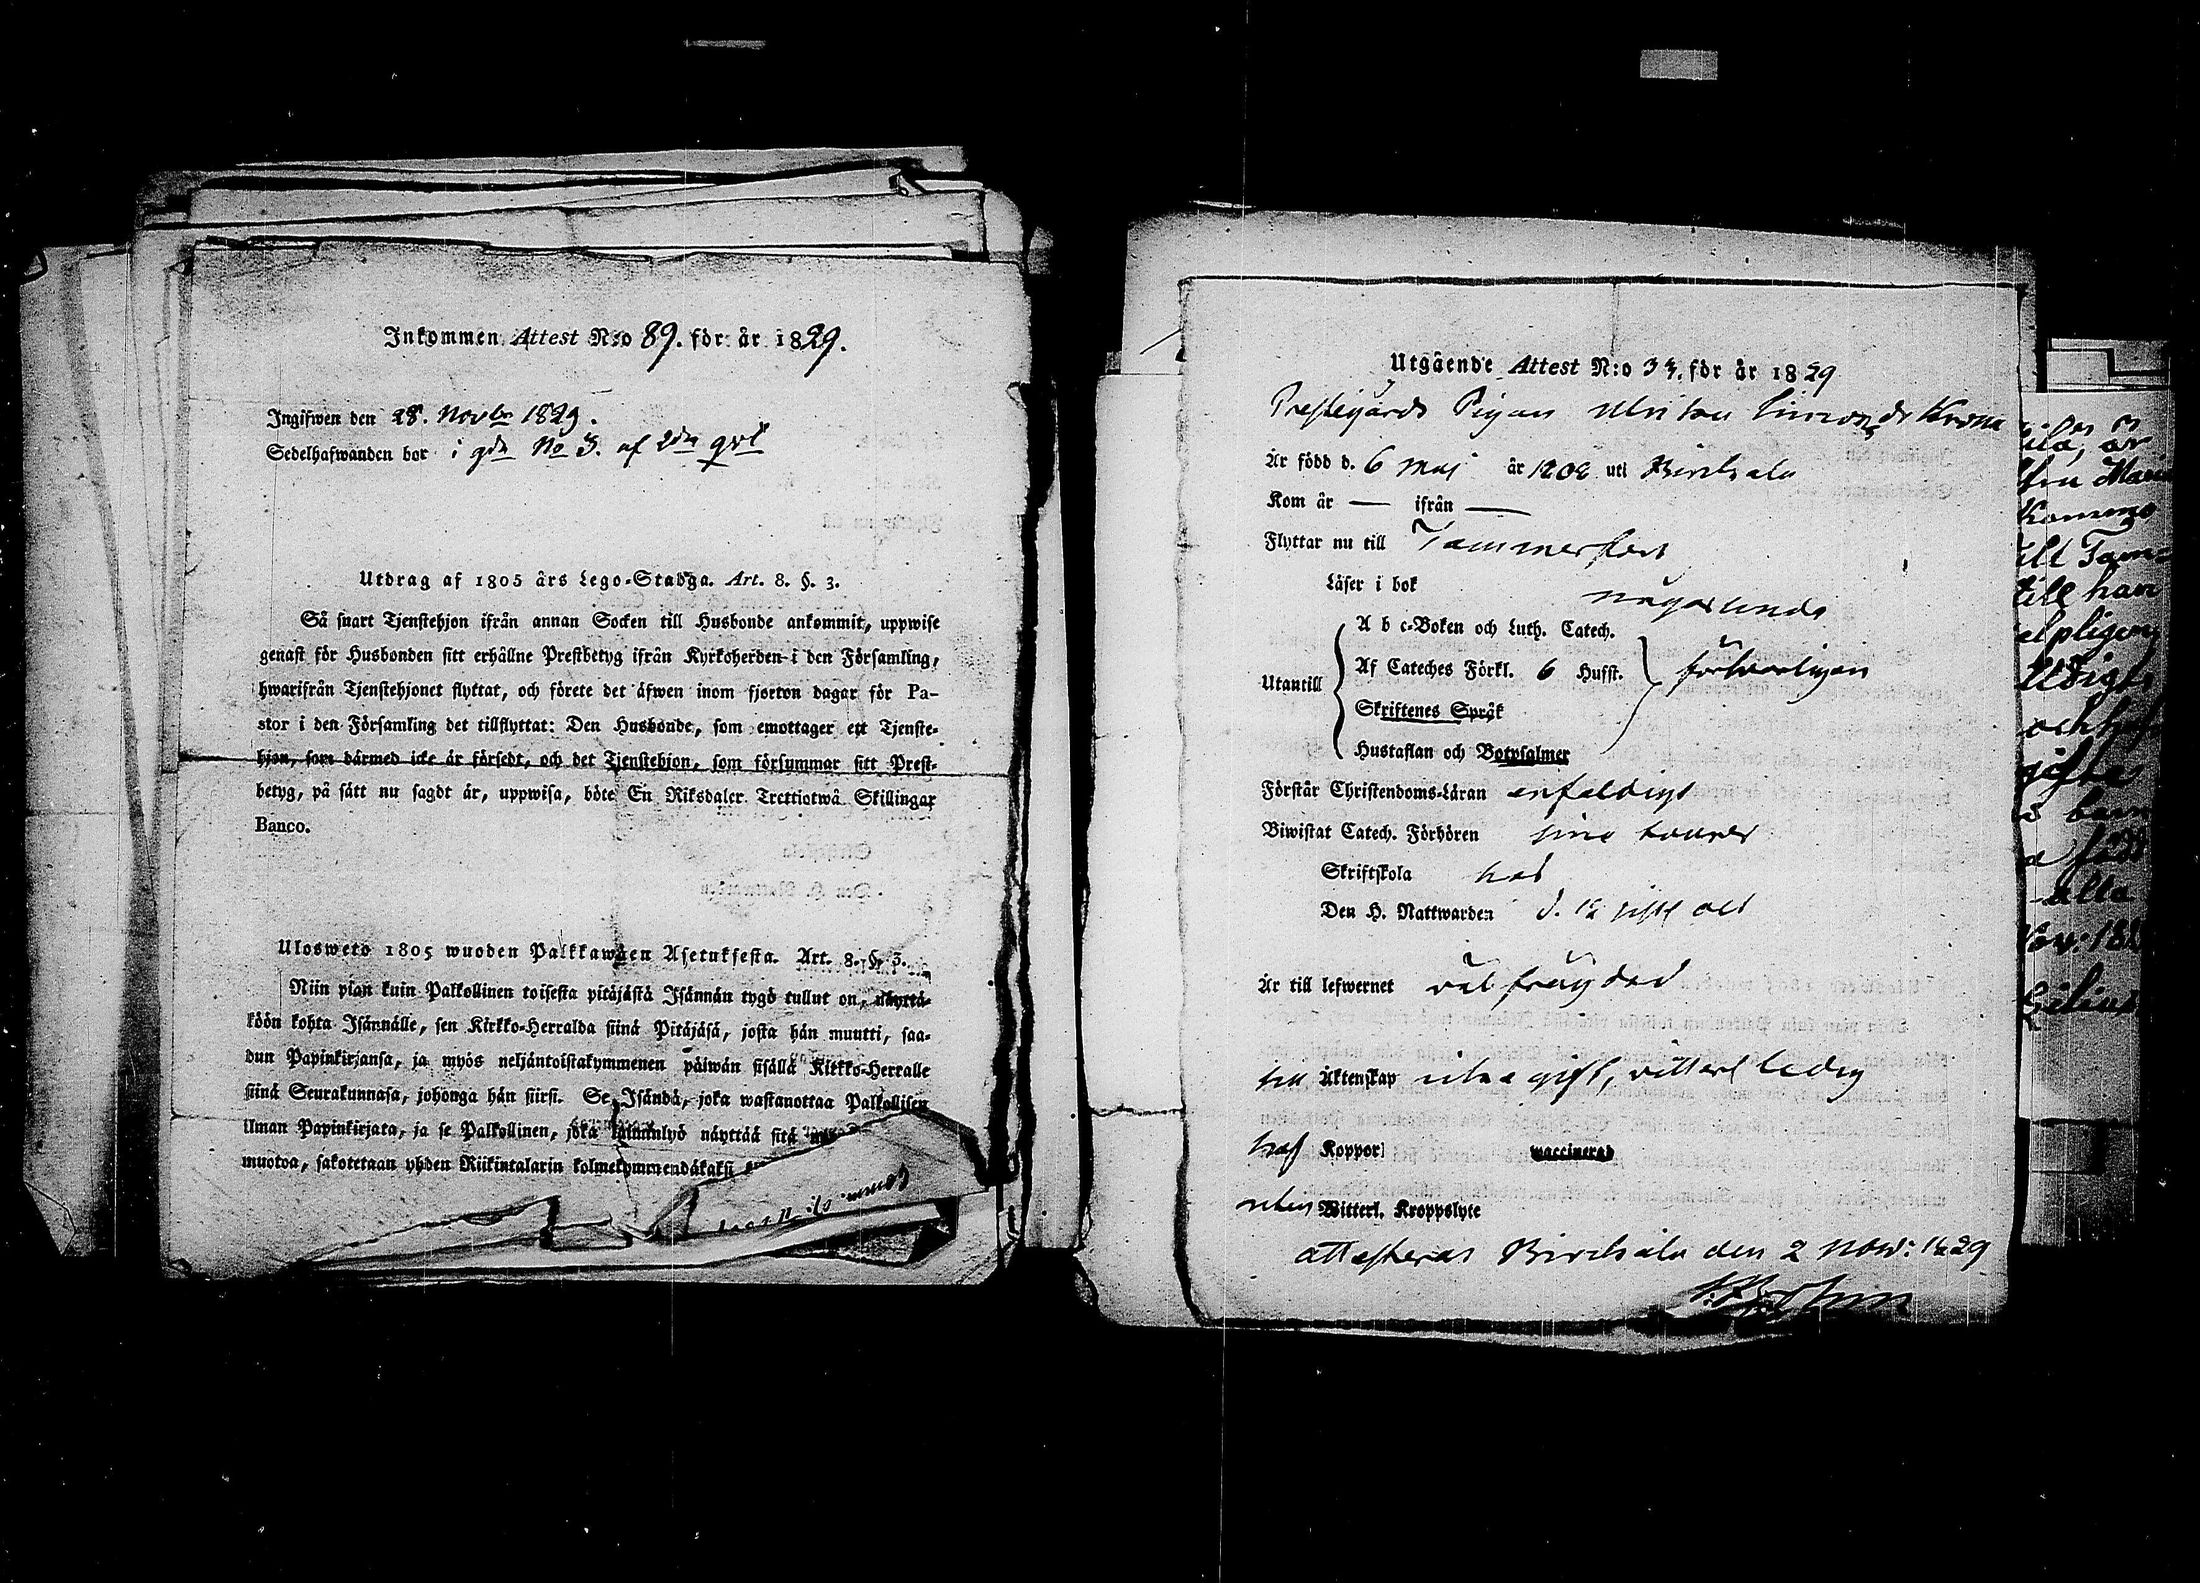 Inkommen Attest N:o 89. för år 1829.
Ingifwen den 28. Novbr 1829.
Sedelhafwanden bor i gdn No 3. af 2dra qvt
Utdrag af 1805 års Lego-Stadga. Art. 8. §. 3.
Så snart Tjenstehjon ifrån annan Socken till Husbonde ankommit, uppwise
genast för Husbonden sitt erhållne Prestbetyg ifrån Kyrkoherden i den Församling,
hwarifrån Tjenstehjonet flyttat, och förete det äfwen inom fjorton dagar för Pa-
stor i den Församling det tillflyttat: Den Husbonde, som emottager ett Tjenste-
hjon, som därmed icke är försedt, och det Tjenstehjon, som försummar sitt Prest-
betyg, på sätt nu sagdt är, uppwisa, böte En Riksdaler Trettiotwå Skillingar
Banco.
Ulosweto 1805 wuoden Palkkawäen Asetuksesta. Art. 8. §. 3.
Niin pian kuin Palkollinen toisesta pitäjästä Isännän tygö tullut on, näyttä-
köön kohta Isännälle, sen Kirkko-Herralda siinä Pitäjäsä, josta hän muutti, saa-
dun Papinkirjansa, ja myös neljäntoistakymmenen päiwän sisällä Kirkko-Herralle
siinä Seurakunnasa, johonga hän siirsi. Se Isändä, joka wastanottaa Palkollisen
ilman Papinkirjata, ja se Palkollinen, joka laiminlyö näyttää sitä
muotoa, sakotetaan yhden Riikintalarin kolmekymmendäkaksi
Utgående Attest N:o 33. för år 1829
Prestegårds Pigan Ulrika Simonsdr Krona
Är född d. 6 Maj år 1808 uti Birckala
Kom år — ifrån —
Flyttar nu till Tammerfors
Läser i bok någorlunda
A b c-Boken och Luth. Catech.
Utantill Af Cateches Förkl. 6 Hufst. försvarligen
Skriftenes Språk
Hustaflan och Botpsalmer
Förstår Christendoms-Läran enfaldigt
Biwistat Catech. Förhören sine
Skriftskola
Den H. Nattwarden d. 12 sistl
Är till lefwernet väl frägdad
till Äktenskap icke gift, vitterl ledig
haft Koppor waccinerad
utan Witterl. Kroppslyte
attesteras Birckala den 2 Nov: 1829